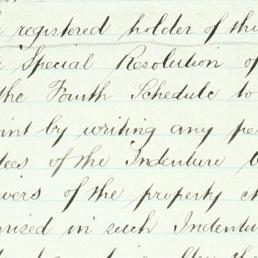 registered holder of thi
Special Resolution of
the Fourth Schedule to
int by writing any pe
ees of the Indenture
wers of the property ch
rised in such Indentu